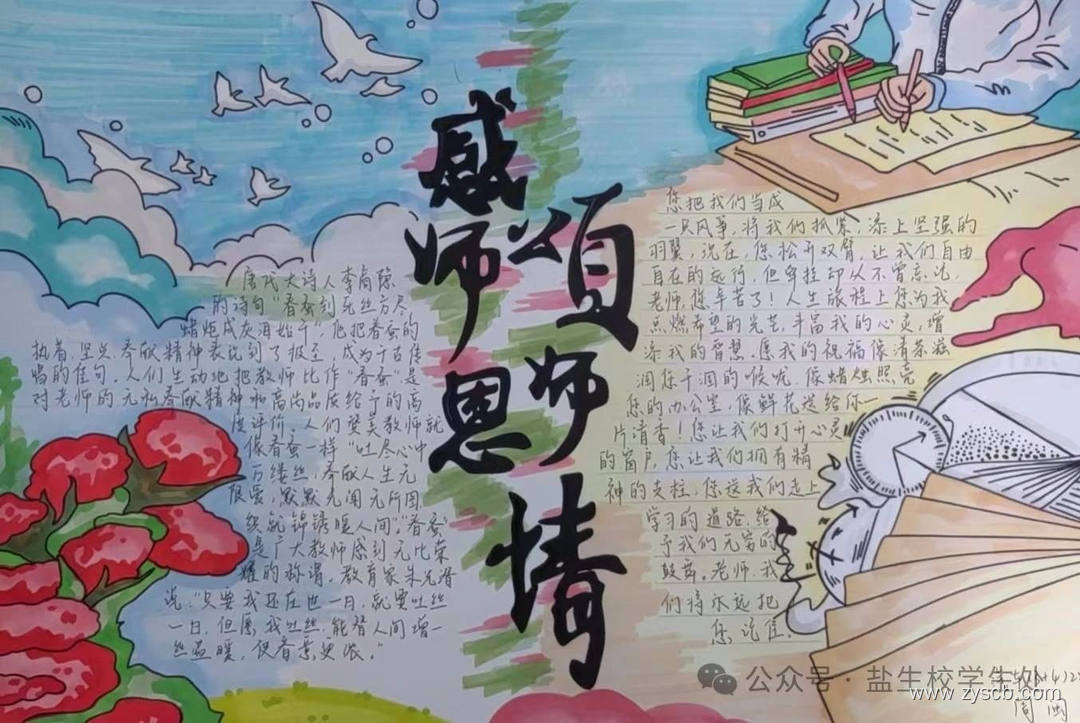 感师恩
颂师情
唐代大诗人李商隐
的诗句“春蚕到死丝方尽
蜡炬成灰泪始干”他把春蚕的
执着、坚贞奉献精神表达到了极至,成为千古传
唱的佳句,人们生动地把教师比作“春蚕”是
对老师的无私奉献精神和高尚品质给予的高
度评价,人们赞美教师就
像春蚕一样“吐尽心中
万缕丝,奉献人生无
限爱,默默无闻无所图
织就锦绣暖人间。”春蚕
是广大教师感到无比荣
耀的称谓,教育家朱光潜
说:“只要我还在世一日,就要吐丝
一日,但愿我吐丝,能替人间增一
丝温暖,使春意更浓。”
您把我们当成
一只风筝,将我们抓紧,添上坚强的
羽翼,现在,您松开双臂,让我们自由
自在的远行,但牵挂却从不曾忘记,
老师,您辛苦了!人生旅程上您为我
点燃希望的光芒,丰富我的心灵,增
添我的智慧.愿我的祝福像清茶滋
润您干涸的喉咙,像蜡烛照亮
您的办公室,像鲜花送给你一
片清香!您让我们打开心灵
的窗户,您让我们拥有精
神的支柱,您送我们走上
学习的道路,给
予我们无穷的
鼓舞。老师,我
们将永远把
您记住.
公众号·盐生校学生处
www.zyscb.com